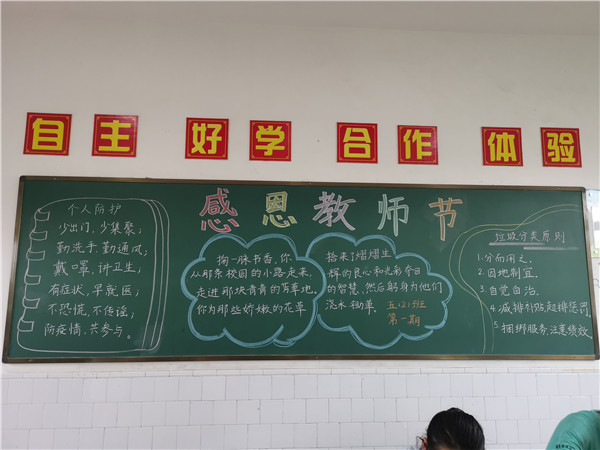 自主 好学 合作 体验
感恩教师节
个人防护
少出门,少集聚;
勤洗手,勤通风;
戴口罩,讲卫生;
有症状,早就医;
不恐慌,不传谣;
防疫情,共参与。
掬一脉书香,你,
从那条校园的小路走来,
走进那块青青的芳草地,
你为那些娇嫩的花草
搭来了熠熠生
辉的良心和光彩夺目
的智慧,然后躬身为他们
浇水锄草。
五(2)班
第一期
垃圾分类原则
1.分而用之。
2.因地制宜。
3.自觉自治。
4.减排补贴,超排惩罚。
5.捆绑服务,注重绩效